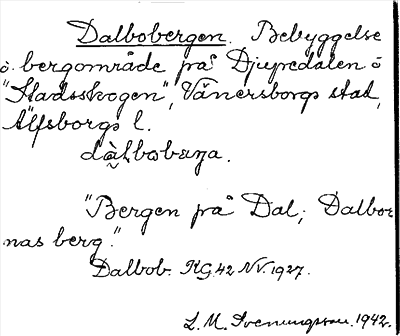 Dalbobergen. Bebyggelse
o. bergområde på Djupedalen o
"Stadsskogen", Vänersborgs stad,
Älfsborgs l.
"Bergen på Dal; Dalbor-
nas berg."
Dalbob. RG. 42 NV. 1927.
L. M. Svenungsson. 1942.